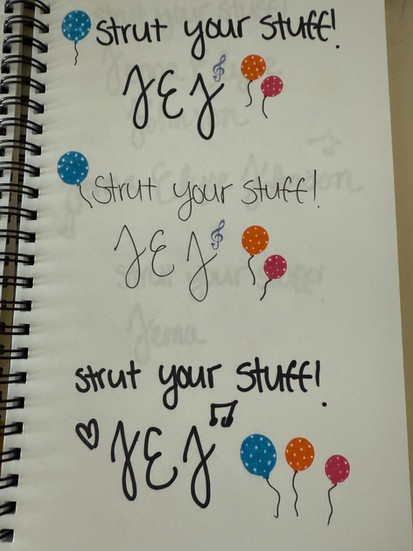 strut your stuff!
JEJ
strut your stuff!
JEJ
strut your stuff!
JEJ